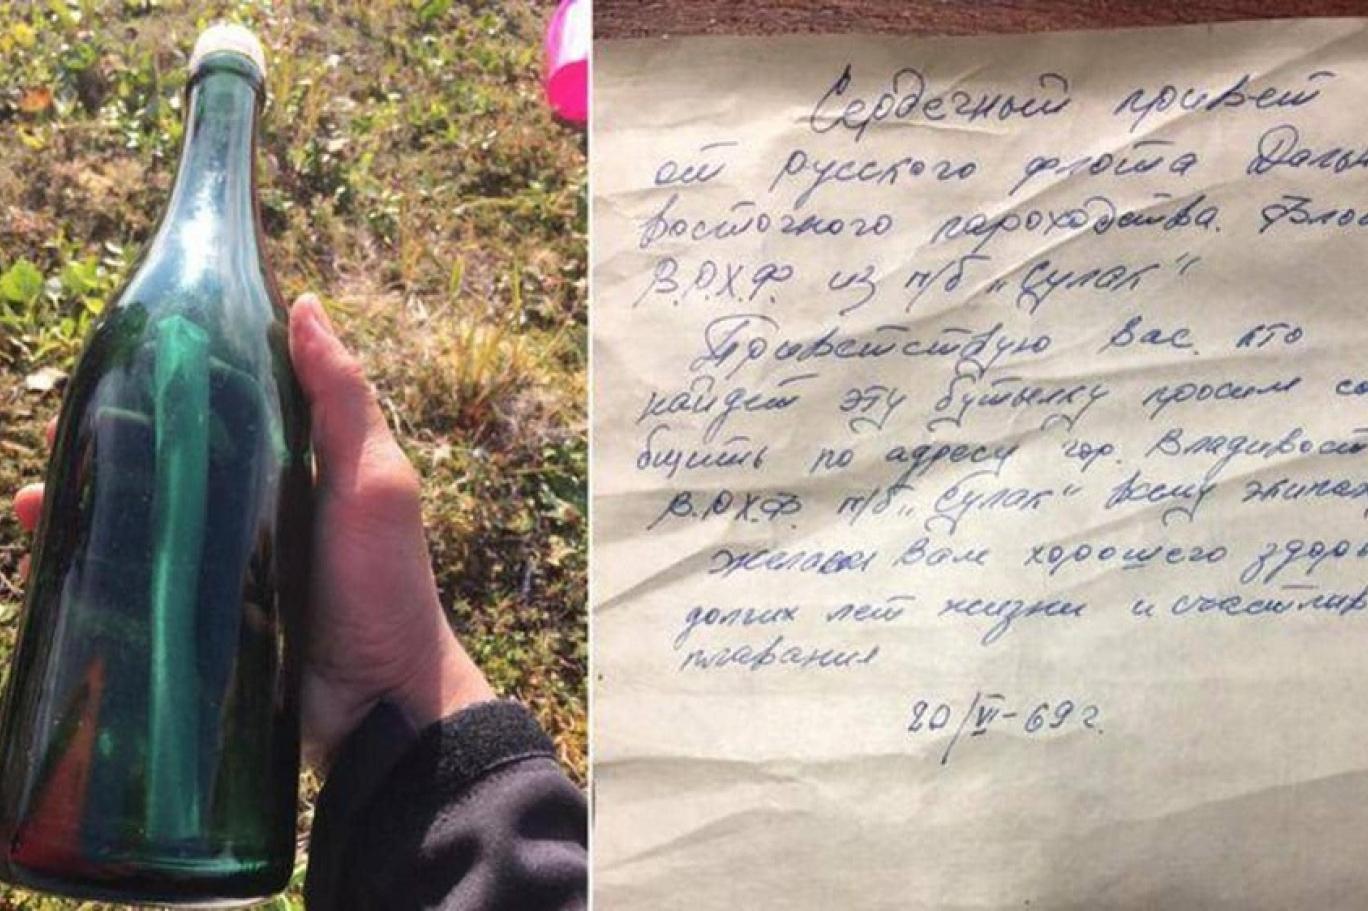 Сердечный привет
от русского флота Даль
восточного пароходства.
В.Р.Х.Ф. из п/б „Сулак“
Приветствую Вас. кто
найдет эту бутылку просим со
бщить по адресу гор. Владивост
В.Р.Х.Ф. п/б „Сулак“ всему экипаж
желаем Вам хорошего здоро
долгих лет жизни и счастлив
плавания
20/VI-69 г.